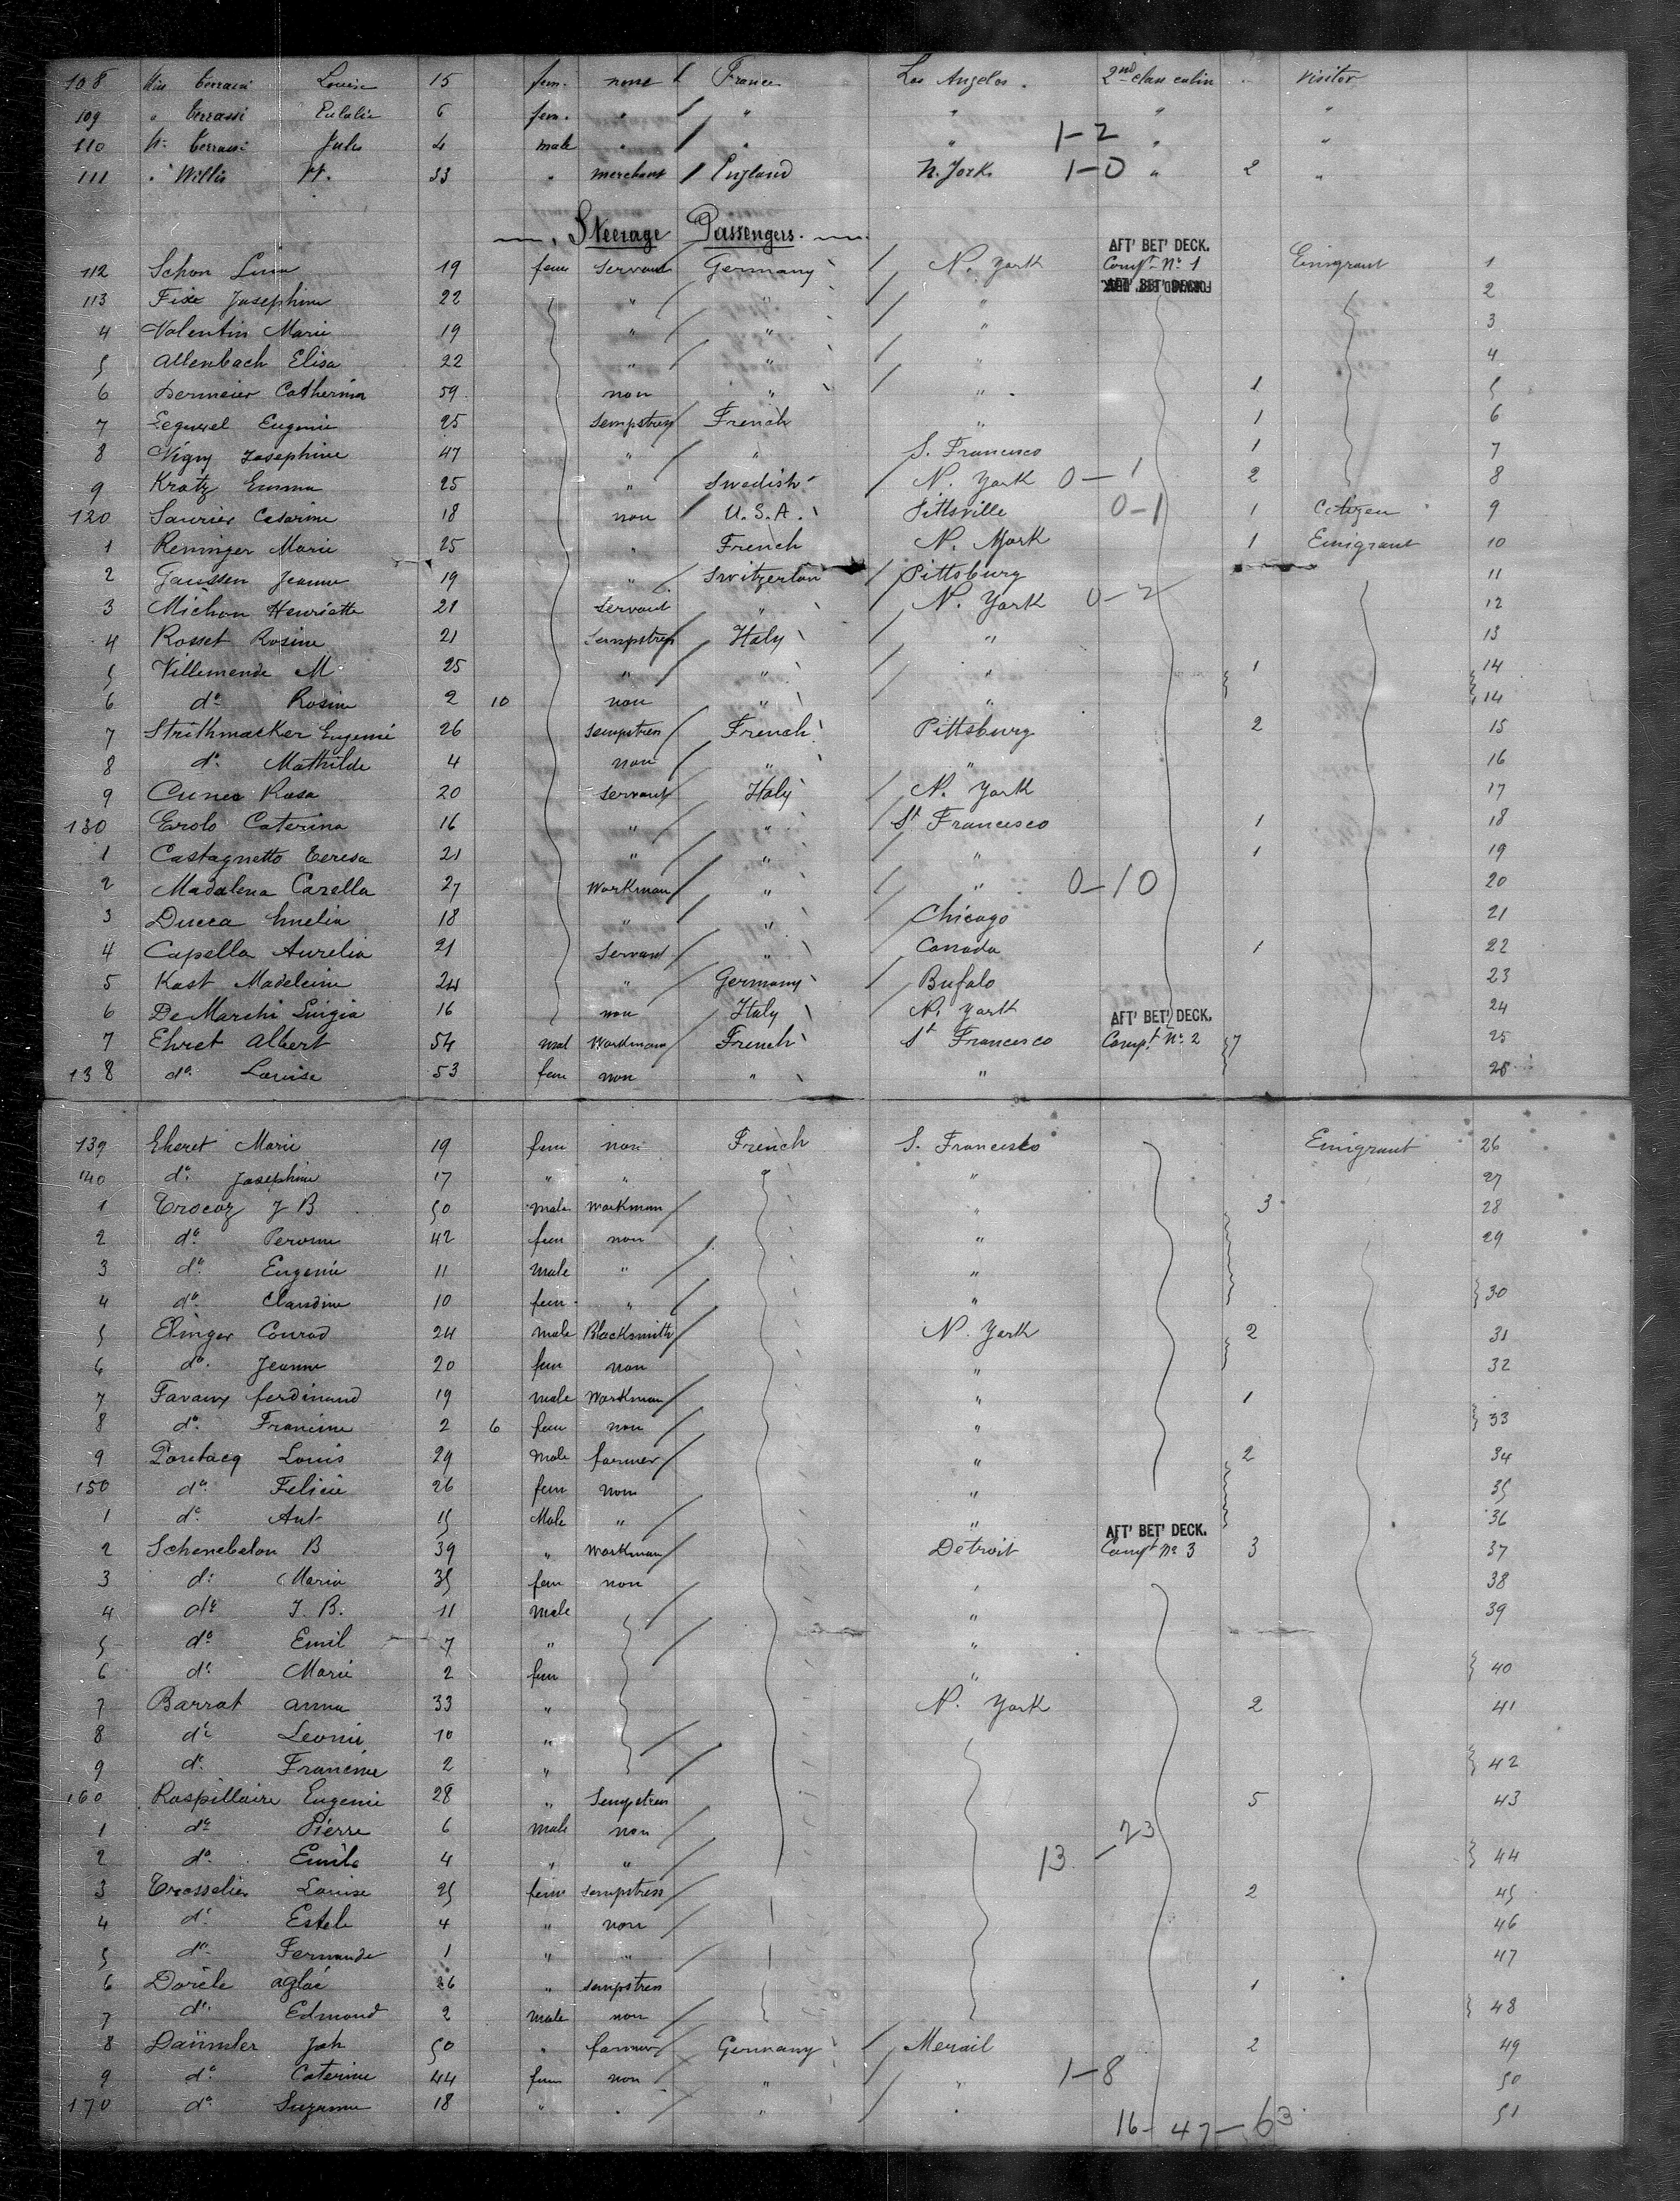 108 Miss Terrassi Louise 15 fem. none France Los Angeles. 2nd class cabin visitor
109 " Terrassi Eulalie 6 fem. " " " " "
110 Mr. Terrassi Jules 4 male " " " 1-2 " "
111 " Willis H. 33 " merchant England N. York 1-0 " 2 "
Steerage Passengers.
AFT' BET' DECK.
112 Schon Lina 19 fem servant Germany N. York Compt No 1 Emigrant 1
113 Fixe Josephine 22 " " " 2
4 Valentin Marie 19 " " " 3
5 Allenbach Elisa 22 " " " 4
6 Dermeier Catherina 59 non " " 1 5
7 Lequexel Eugenie 25 Sempstress French " 1 6
8 Vigny Josephine 47 " " S. Francisco 1 7
9 Kratz Emma 25 " Swedish N. York 0-1 2 8
120 Saurier Cesarine 18 non U.S.A. Pittsville 0-1 1 Citizen 9
1 Reninger Marie 25 " French N. York 1 Emigrant 10
2 Gaussen Jeanne 19 " Switzerlan Pittsburg 11
3 Michon Henriette 21 Servant " N. York 0-2 12
4 Rosset Rosine 21 Sempstress Italy " 13
5 Villemende M 25 " " " 1 14
6 do Rosine 2 10 non " " 14
7 Strithmatker Eugenie 26 Sempstress French Pittsburg 2 15
8 do Mathilde 4 non " " 16
9 Cuneo Rosa 20 Servant Italy N. York 17
130 Erolo Caterina 16 " " St Francesco 1 18
1 Castagnetto Teresa 21 " " " 1 19
2 Madalena Carella 27 Workman " " 0-10 20
3 Ducca Emelia 18 " " Chicago 21
4 Capella Aurelia 21 Servant " Canada 1 22
5 Kast Madeleine 24 " Germany Bufalo 23
6 De Marchi Luigia 16 non Italy N. York 24
AFT' BET' DECK.
7 Ehret Albert 54 mal Workman French St Francesco Compt No 2 7 25
138 do Louise 53 fem non " " 25
139 Eheret Marie 19 fem non French S. Francesco Emigrant 26
140 do Josephine 17 " " " 27
1 Trocaz J B 50 male Workman " 3 28
2 do Peronne 42 fem non " 29
3 do Eugenie 11 male " "
4 do Claudine 10 fem " " 30
5 Elinger Conrad 24 male Blacksmith N. York 2 31
6 do Jeanne 20 fem non " 32
7 Favaux ferdinand 19 male Workman " 1
8 do Francine 2 6 fem non " 33
9 Louis 29 Male farmer " 2 34
150 do Felicie 26 fem non " 35
1 do Ant 15 Male " " 36
AFT' BET' DECK.
2 Schenebelon B 39 " Workman Detroit Compt No 3 3 37
3 do Maria 35 fem non " 38
4 do J. B. 11 male " 39
5 do Emil 7 " "
6 do Marie 2 fem " 40
7 Barrat anna 33 " N. York 2 41
8 do Leonie 10 "
9 do Francine 2 " 42
160 Raspillaire Eugenie 28 " Sempstress 5 43
1 do Pierre 6 male non
2 do Emile 4 " " 13-23 44
3 Trosselier Louise 25 fem sempstress 2 45
4 do Estele 4 " non 46
5 do Fernande 1 " " 47
6 Dorèle aglaé 26 " sempstress 1
7 do Edmond 2 male non 48
8 Daümler Joh 50 " farmer Germany 2 49
9 do Caterine 44 fem non " " 1-8 50
170 do Suzanne 18 " " " " 51
16-47-63